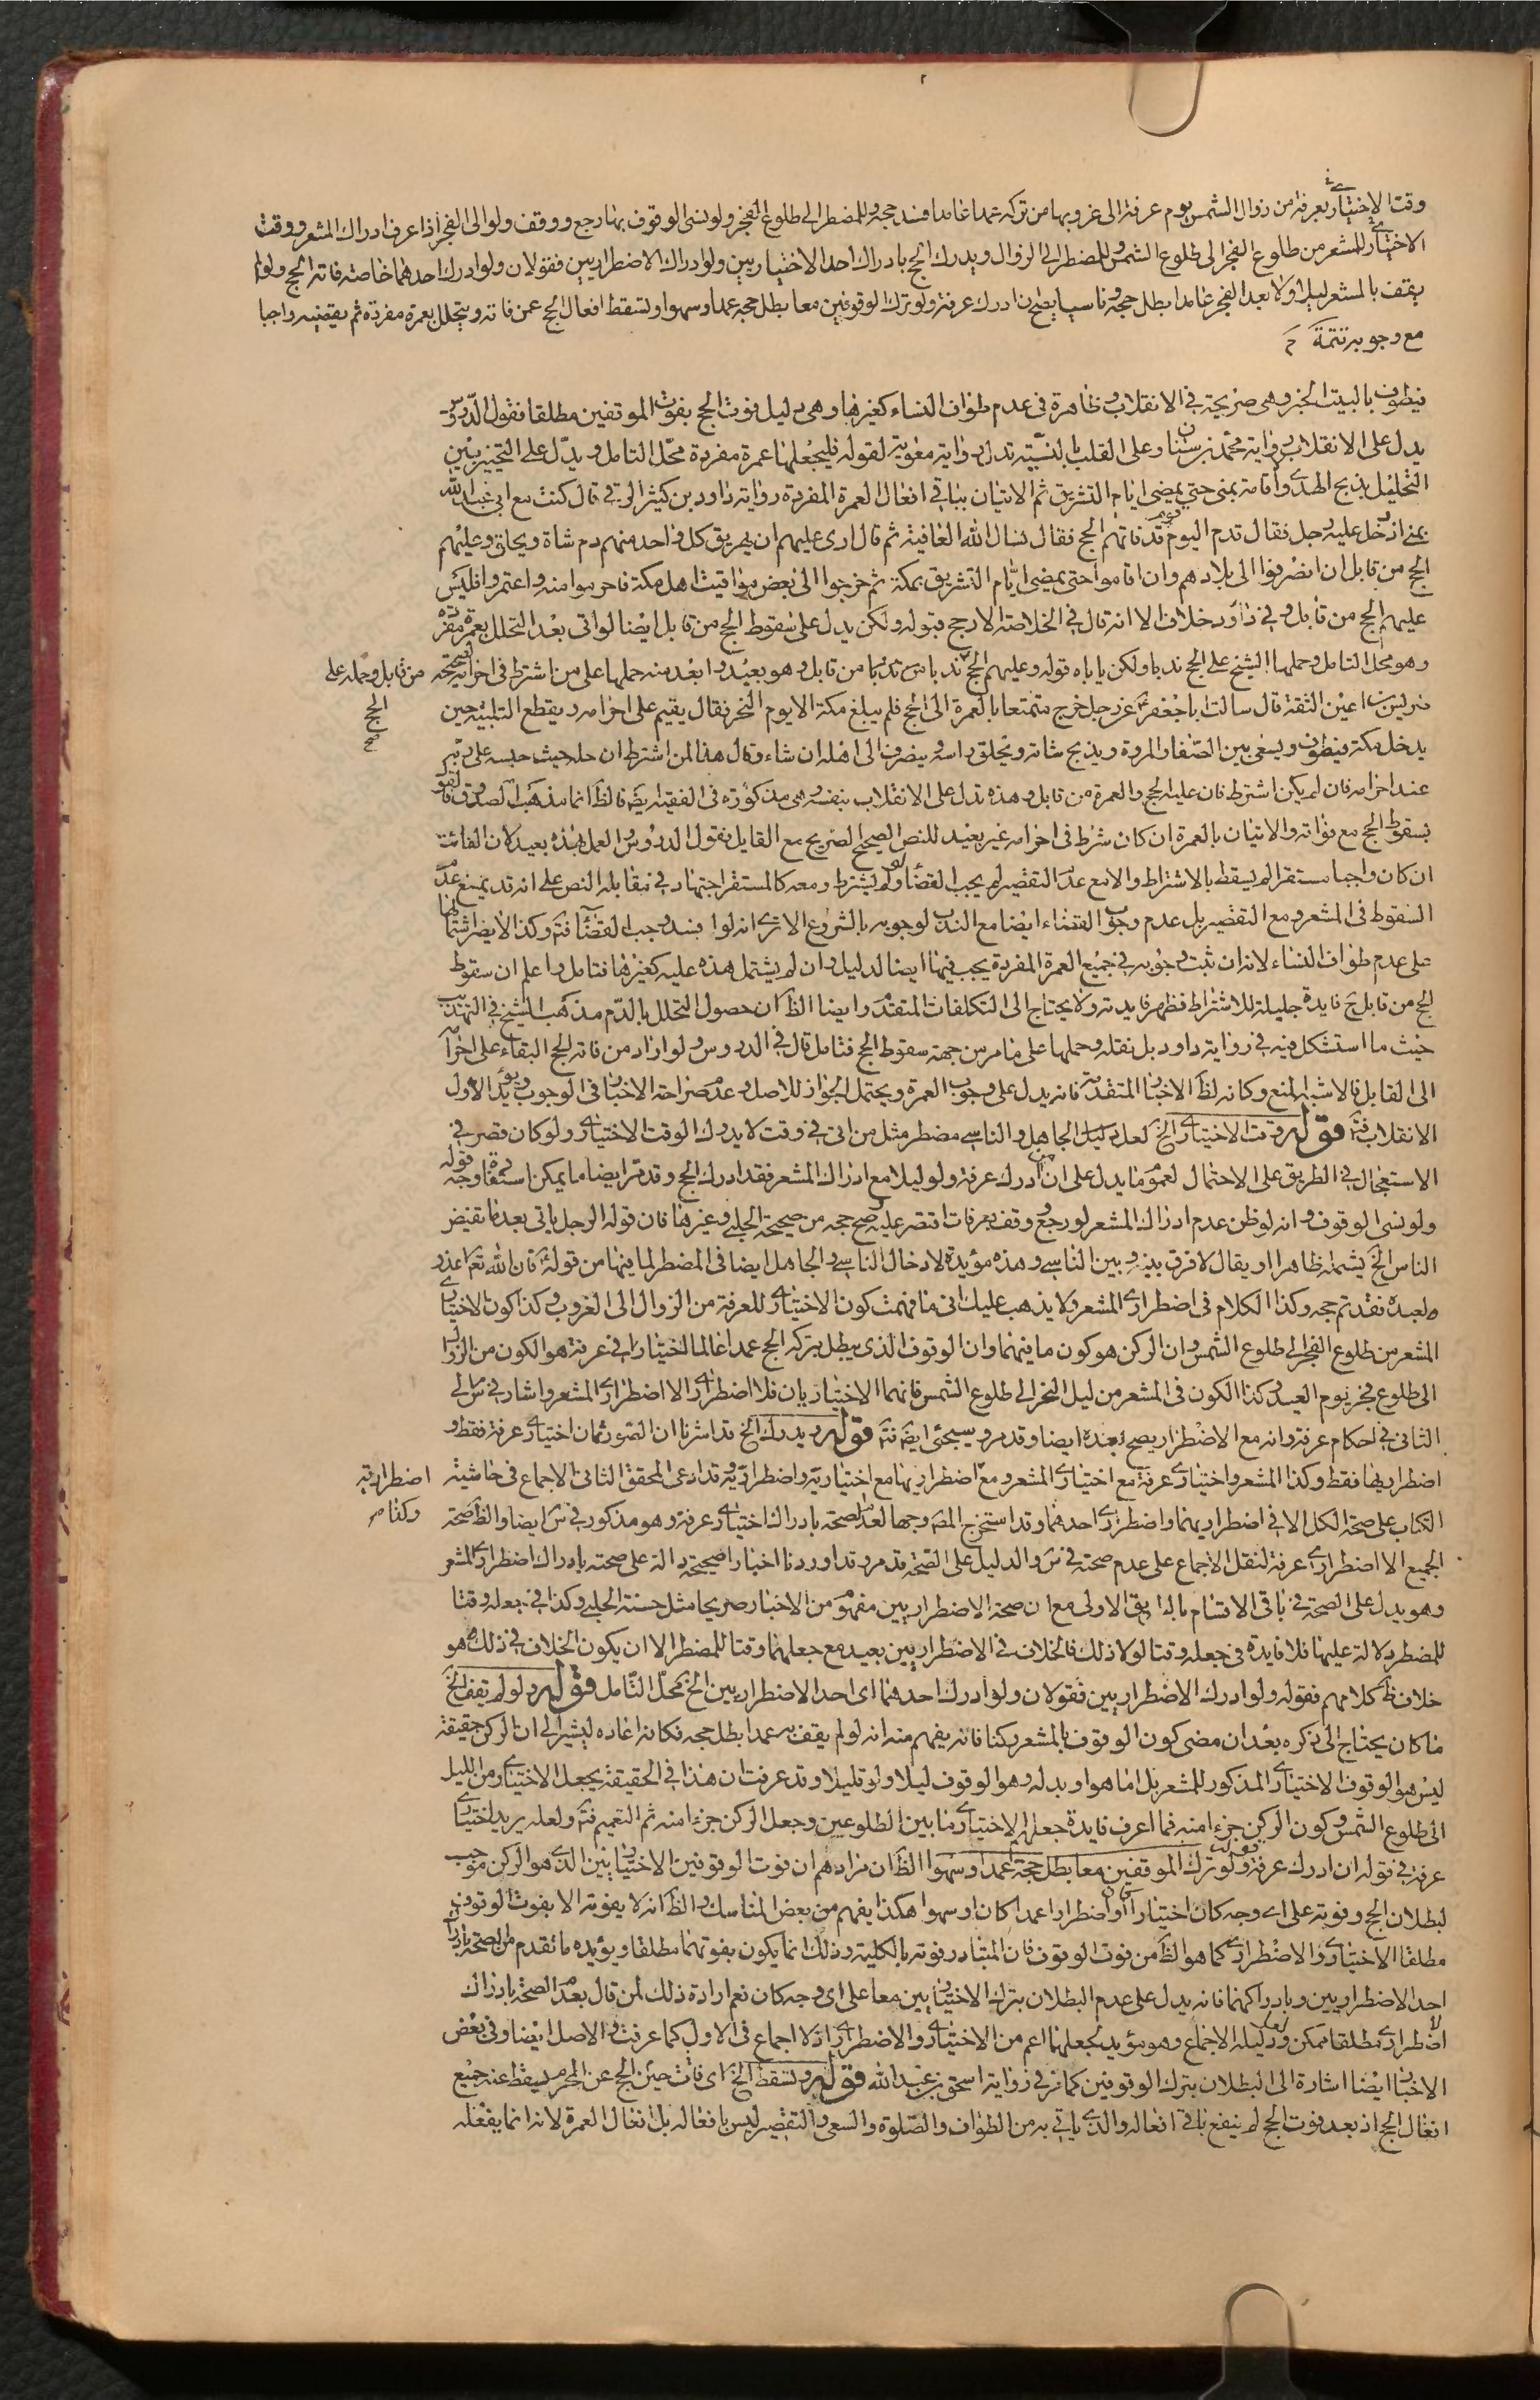 وقت الاختياري بعرفة من زوال الشمس يوم عرفة الى غروبها من تركه عمدا عامدا فسد حجه وللمضطر الى طلوع الفجر ولو نسى الوقوف بها رجع ووقف ولو الى الفجر اذا عرف ادراك المشعر ووقت
الاختياري للمشعر من طلوع الفجر الى طلوع الشمس وللمضطر الى الزوال ويدرك الحج بادراك احد الاختياريين ولو ادرك الاضطراريين فقولان ولو ادرك احدهما خاصة فاته الحج ولو لم
يقف بالمشعر ليلا ولا بعد الفجر عامدا بطل حجه وناسيا يصح ان ادرك عرفة ولو ترك الوقوفين معا بطل حجه عمدا وسهوا وتسقط افعال الحج عمن فاته ويتحلل بعمرة مفردة ثم يقضيه واجبا
مع وجوبه تتمة
فيطوف بالبيت الخبر وهي صريحة في الانقلاب وظاهرة في عدم طواف النساء كغيرها وهي دليل فوت الحج بفوت الموقفين مطلقا فقول الدروس
يدل على الانقلاب رواية محمد بن سنان وعلى القلب بالنية تدل رواية معوية لقوله فليجعلها عمرة مفردة محل التامل ويدل على التخيير بين
التحليل بذبح الهدي واقامة بمنى حتى يمضى ايام التشريق ثم الاتيان بباقي افعال العمرة المفردة رواية داود بن كثير الرقي قال كنت مع ابي عبد الله
بمنى اذ دخل عليه رجل فقال قدم اليوم قوم قد فاتهم الحج فقال نسال الله العافية ثم قال ارى عليهم ان يهريق كل واحد منهم دم شاة ويحلق وعليهم
الحج من قابل ان انصرفوا الى بلادهم وان اقاموا حتى يمضى ايام التشريق بمكة ثم خرجوا الى بعض مواقيت اهل مكة فاحرموا منه واعتمروا فليس
عليهم الحج من قابل وفي داود خلاف الا انه قال في الخلاصة الارجح قبوله ولكن يدل على سقوط الحج من قابل ايضا لو اتى بعد التحلل بعمرة مفردة
وهو محل التامل وحملها الشيخ على الحج ندبا ولكن ياباه قوله وعليهم الحج ندبا من قابل وهو بعيد وابعد منه حملها على من اشترط في احرامه لصحيحة
من قابل وحمله على
الحج
صح
ضريس بن اعين الثقة قال سالت ابا جعفر عن رجل خرج متمتعا بالعمرة الى الحج فلم يبلغ مكة الا يوم النحر فقال يقيم على احرامه ويقطع التلبية حين
يدخل مكة فيطوف ويسعى بين الصفا والمروة ويذبح شاته ويحلق راسه وينصرف الى اهله ان شاء وقال هذا لمن اشترط ان حله حيث حبسه على ربه
عند احرامه فان لم يكن اشترط فان عليه الحج والعمرة من قابل وهذه تدل على الانقلاب بنفسه وهي مذكورة في الفقيه ايضا فالظ انها مذهب الصدوق فالقول
بسقوط الحج مع فواته والاتيان بالعمرة ان كان شرط في احرامه غير بعيد للنص الصحيح الصريح مع القايل فقول الدروس والعمل بهذه بعيد لان الفائت
ان كان واجبا مستقرا لم يسقط بالاشتراط والا مع عدم التقصير لم يجب القضاء ولو لم يشترط ومعه كالمستقر اجتهاد في مقابلة النص على انه قد يمنع عدم
السقوط في المشعر ومع التقصير بل عدم وجوب القضاء ايضا مع الندب لوجوبه بالشروع الا ترى انه لو افسد وجب القضاء فته وكذا لا يضر اشتمالها
على عدم طواف النساء لانه ان ثبت وجوبه في جميع العمرة المفردة يجب فيها ايضا لدليله وان لم يشتمل هذه عليه كغيرها فتامل واعلم ان سقوط
الحج من قابل ح فايدة جليلة للاشتراط فظهر فايدته ولا يحتاج الى التكلفات المتقدمة وايضا الظ ان حصول التحلل بالدم مذهب الشيخ في التهذيب
حيث ما استشكل فيه في رواية داود بل نقله وحملها على ما مر من جهة سقوط الحج فتامل قال في الدروس ولو اراد من فاته الحج البقاء على احرامه
الى القابل فالاشبه المنع وكانه لظ الاخبار المتقدمة فانه يدل على وجوب العمرة ويحتمل الجواز للاصل وعدم صراحة الاخبار في الوجوب ويؤيد الاول
الانقلاب فته قوله وقت الاختياري الخ لعل دليل الجاهل والناسي مضطر مثل من اتى في وقت لا يدرك الوقت الاختياري ولو كان قصر في
الاستعجال في الطريق على الاحتمال لعموم ما يدل على ان من ادرك عرفة ولو ليلا مع ادراك المشعر فقد ادرك الحج وقد مر ايضا ما يمكن استفادة وجه قوله
ولو نسى الوقوف وانه لو ظن عدم ادراك المشعر لو رجع ووقف بعرفات اقتصر عليه وصح حجه من صحيحة الحلبي وغيرها فان قوله الرجل ياتي بعد ما يفيض
الناس الخ يشمله ظاهرا او يقال لا فرق بينه وبين الناسي وهذه مؤيدة لادخال الناسي والجاهل ايضا في المضطر لما فيها من قوله فان الله تعالى اعذر
لعبده فقد تم حجه وكذا الكلام في اضطراري المشعر ولا يذهب عليك اني ما فهمت كون الاختياري للعرفة من الزوال الى الغروب وكذا كون الاختياري
المشعر من طلوع الفجر الى طلوع الشمس وان الركن هو كون ما فيهما وان الوقوف الذي يبطل بتركه الحج عمدا عالما اختيارا في عرفة هو الكون من الزوال
الى طلوع فجر يوم العيد وكذا الكون في المشعر من ليل النحر الى طلوع الشمس فانهما الاختياريان فلا اضطراري الا اضطراري المشعر واشار في س الى
الثاني في احكام عرفة وانه مع الاضطرار يصح بعده ايضا وقد مر وسيجئ ايضا فته قوله ويدرك الخ قد اشرنا ان الصور ثمان اختياري عرفة فقط و
اضطراريها فقط وكذا المشعر واختياري عرفة مع اختياري المشعر ومع اضطراريها مع اختيارية واضطرارية وقد ادعى المحقق الثاني الاجماع في حاشية
اضطراريه
وكذا
الكتاب على صحة الكل الا في اضطراريهما واضطراري احدهما وقد استخرج المصه وجها لعدم الصحة بادراك اختياري عرفة وهو مذكور في س ايضا والظ صحة
الجميع الا اضطراري عرفة لنقل الاجماع على عدم صحته في س والدليل على الصحة قد مر وقد اوردنا اخبارا صحيحة دالة على صحته بادراك اضطراري المشعر
وهو يدل على الصحة في باقي الاقسام بالطريق الاولى مع ان صحة الاضطراريين مفهوم من الاخبار صريحا مثل حسنة الحلبي وكذا في جعله وقتا
للمضطر دلالة عليها فلا فايدة في جعله وقتا لولا ذلك فالخلاف في الاضطراريين بعيد مع جعلهما وقتا للمضطر الا ان يكون الخلاف في ذلك وهو
خلاف ظ كلامهم فقوله ولو ادرك الاضطراريين فقولان ولو ادرك احدهما اى احد الاضطراريين الخ محل التامل قوله ولو لم يقف الخ
ما كان يحتاج الى ذكره بعد ان مضى كون الوقوف بالمشعر ركنا فانه يفهم منه انه لو لم يقف به عمدا بطل حجه فكانه اعاده ليشير الى ان الركن حقيقة
ليس هو الوقوف الاختياري المذكور للمشعر بل اما هو او بدله وهو الوقوف ليلا ولو قليلا وقد عرفت ان هذا في الحقيقة يجعل الاختياري من الليل
الى طلوع الشمس وكون الركن جزءا منه فما اعرف فايدة جعلهم الاختياري ما بين الطلوعين وجعل الركن جزءا منه ثم التعميم فته ولعله يريد اختياري
عرفة في قوله ان ادرك عرفة قوله ولو ترك الموقفين معا بطل حجه عمدا وسهوا الظ ان مرادهم ان فوت الوقوفين الاختياريين الذي هو الركن موجب
لبطلان الحج وفوته على اى وجه كان اختيارا او اضطرارا عمدا كان او سهوا هكذا يفهم من بعض المناسك والظ انه لا يفوته الا بفوت الوقوفين
مطلقا الاختياري والاضطراري كما هو الظ من فوت الوقوف فان المتبادر فوته بالكلية وذلك انما يكون بفوتهما مطلقا ويؤيده ما تقدم من الصحة بادراك
احد الاضطراريين وبادراكهما فانه يدل على عدم البطلان بترك الاختياريين معا على اى وجه كان نعم ارادة ذلك لمن قال بعدم الصحة بادراك
الاضطراري مطلقا ممكن ولعل دليله الاجماع وهو مؤيد لجعلهما اعم من الاختياري والاضطراري اذ لا اجماع في الاول كما عرفت والاصل ايضا وفي بعض
الاخبار ايضا اشارة الى البطلان بترك الوقوفين كما مر في رواية اسحق بن عبد الله قوله وتسقط الخ اى فات حين الحج عن المحرم يسقط عنه جميع
افعال الحج اذ بعد فوت الحج لم ينفع باقي افعاله والذي ياتي به من الطواف والصلوة والسعي والتقصير ليس بافعاله بل افعال العمرة لانه انما يفعله